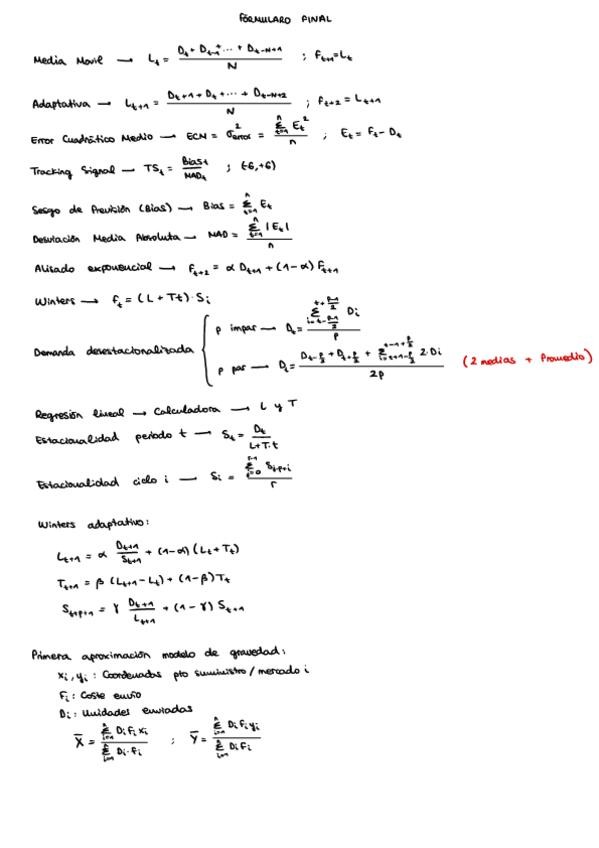 FORMULARO FINAL
Media Movil → L_t = (D_t + D_{t-1} + ... + D_{t-N+1}) / N ; F_{t+1} = L_t
Adaptativa → L_{t+1} = (D_{t+1} + D_t + ... + D_{t-N+2}) / N ; F_{t+2} = L_{t+1}
Error Cuadrático Medio → ECM = σ²_error = (Σ_{t=1}^{n} E_t²) / n ; E_t = F_t - D_t
Tracking Signal → TS_t = Bias_t / MAD_t ; (-6,+6)
Sesgo de Previsión (Bias) → Bias = Σ_{t=1}^{n} E_t
Desviación Media Absoluta → MAD = (Σ_{t=1}^{n} |E_t|) / n
Alisado exponencial → F_{t+2} = α D_{t+1} + (1-α) F_{t+1}
Winters → F_t = (L + Tt) · S_i
Demanda desestacionalizada
p impar → D_t = (Σ_{i=t-(p-1)/2}^{t+(p-1)/2} D_i) / p
p par → D_t = (D_{t-p/2} + D_{t+p/2} + Σ_{i=t+1-p/2}^{t-1+p/2} 2·D_i) / 2p (2 medias + Promedio)
Regresión lineal → Calculadora → L y T
Estacionalidad periodo t → S_t = D_t / (L+T·t)
Estacionalidad ciclo i → S_i = (Σ_{j=0}^{r-1} S_{j·p+i}) / r
Winters adaptativo:
L_{t+1} = α D_{t+1} / S_{t+1} + (1-α) (L_t + T_t)
T_{t+1} = β (L_{t+1} - L_t) + (1-β) T_t
S_{t+p+1} = γ D_{t+1} / L_{t+1} + (1-γ) S_{t+1}
Primera aproximación modelo de gravedad:
x_i, y_i : Coordenadas pto suministro / mercado i
F_i : Coste envío
D_i : Unidades enviadas
X̄ = (Σ_{i=1}^{n} D_i F_i x_i) / (Σ_{i=1}^{n} D_i · F_i) ; Ȳ = (Σ_{i=1}^{n} D_i F_i y_i) / (Σ_{i=1}^{n} D_i F_i)